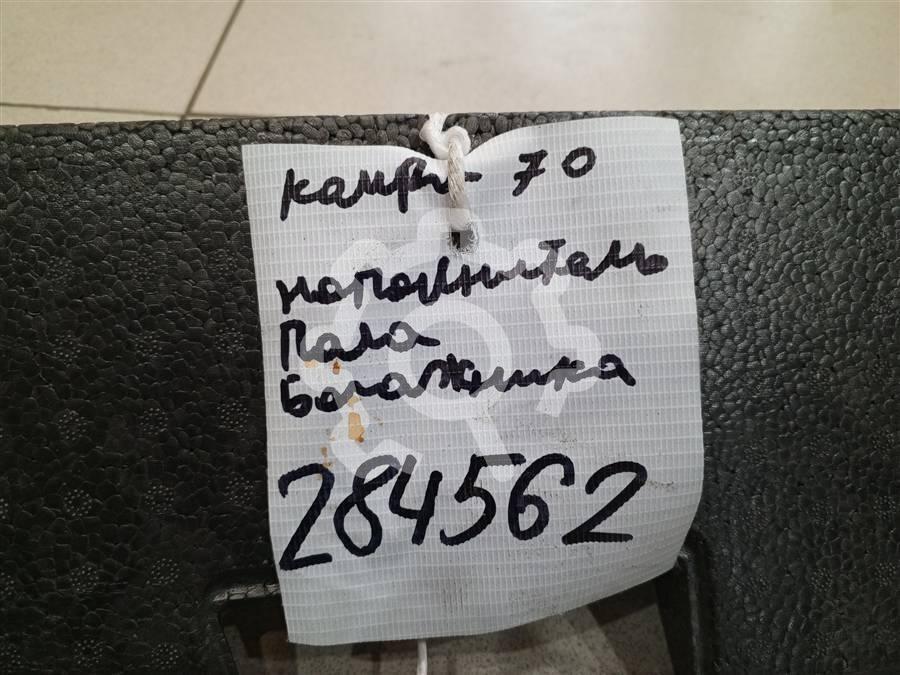 Камри 70
наполнитель
Пола
Багажника
284562